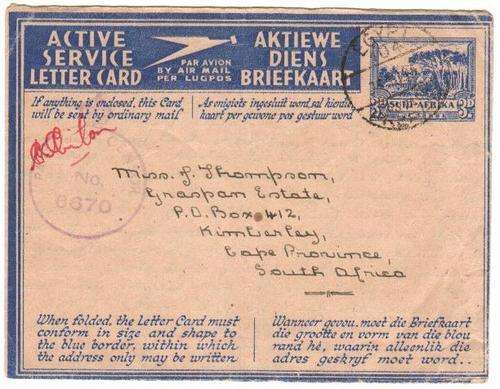 ACTIVE
SERVICE
LETTER CARD
PAR AVION
BY AIR MAIL
PER LUGPOS
AKTIEWE
DIENS
BRIEFKAART
If anything is enclosed, this Card
will be sent by ordinary mail
As enigiets ingesluit word, sal hierdie
kaart per gewone pos gestuur word
SUID-AFRIKA
No.
6670
Miss. J. Thompson,
Graspan Estate,
P.O. Box 412,
Kimberley,
Cape Province,
South Africa
When folded, the letter Card must
conform in size and shape to
the blue border, within which
the address only may be written
Wanneer gevou, moet die Briefkaart
die grootte en vorm van die blou
rand hê, waarin alleenlik die
adres geskryf moet word...